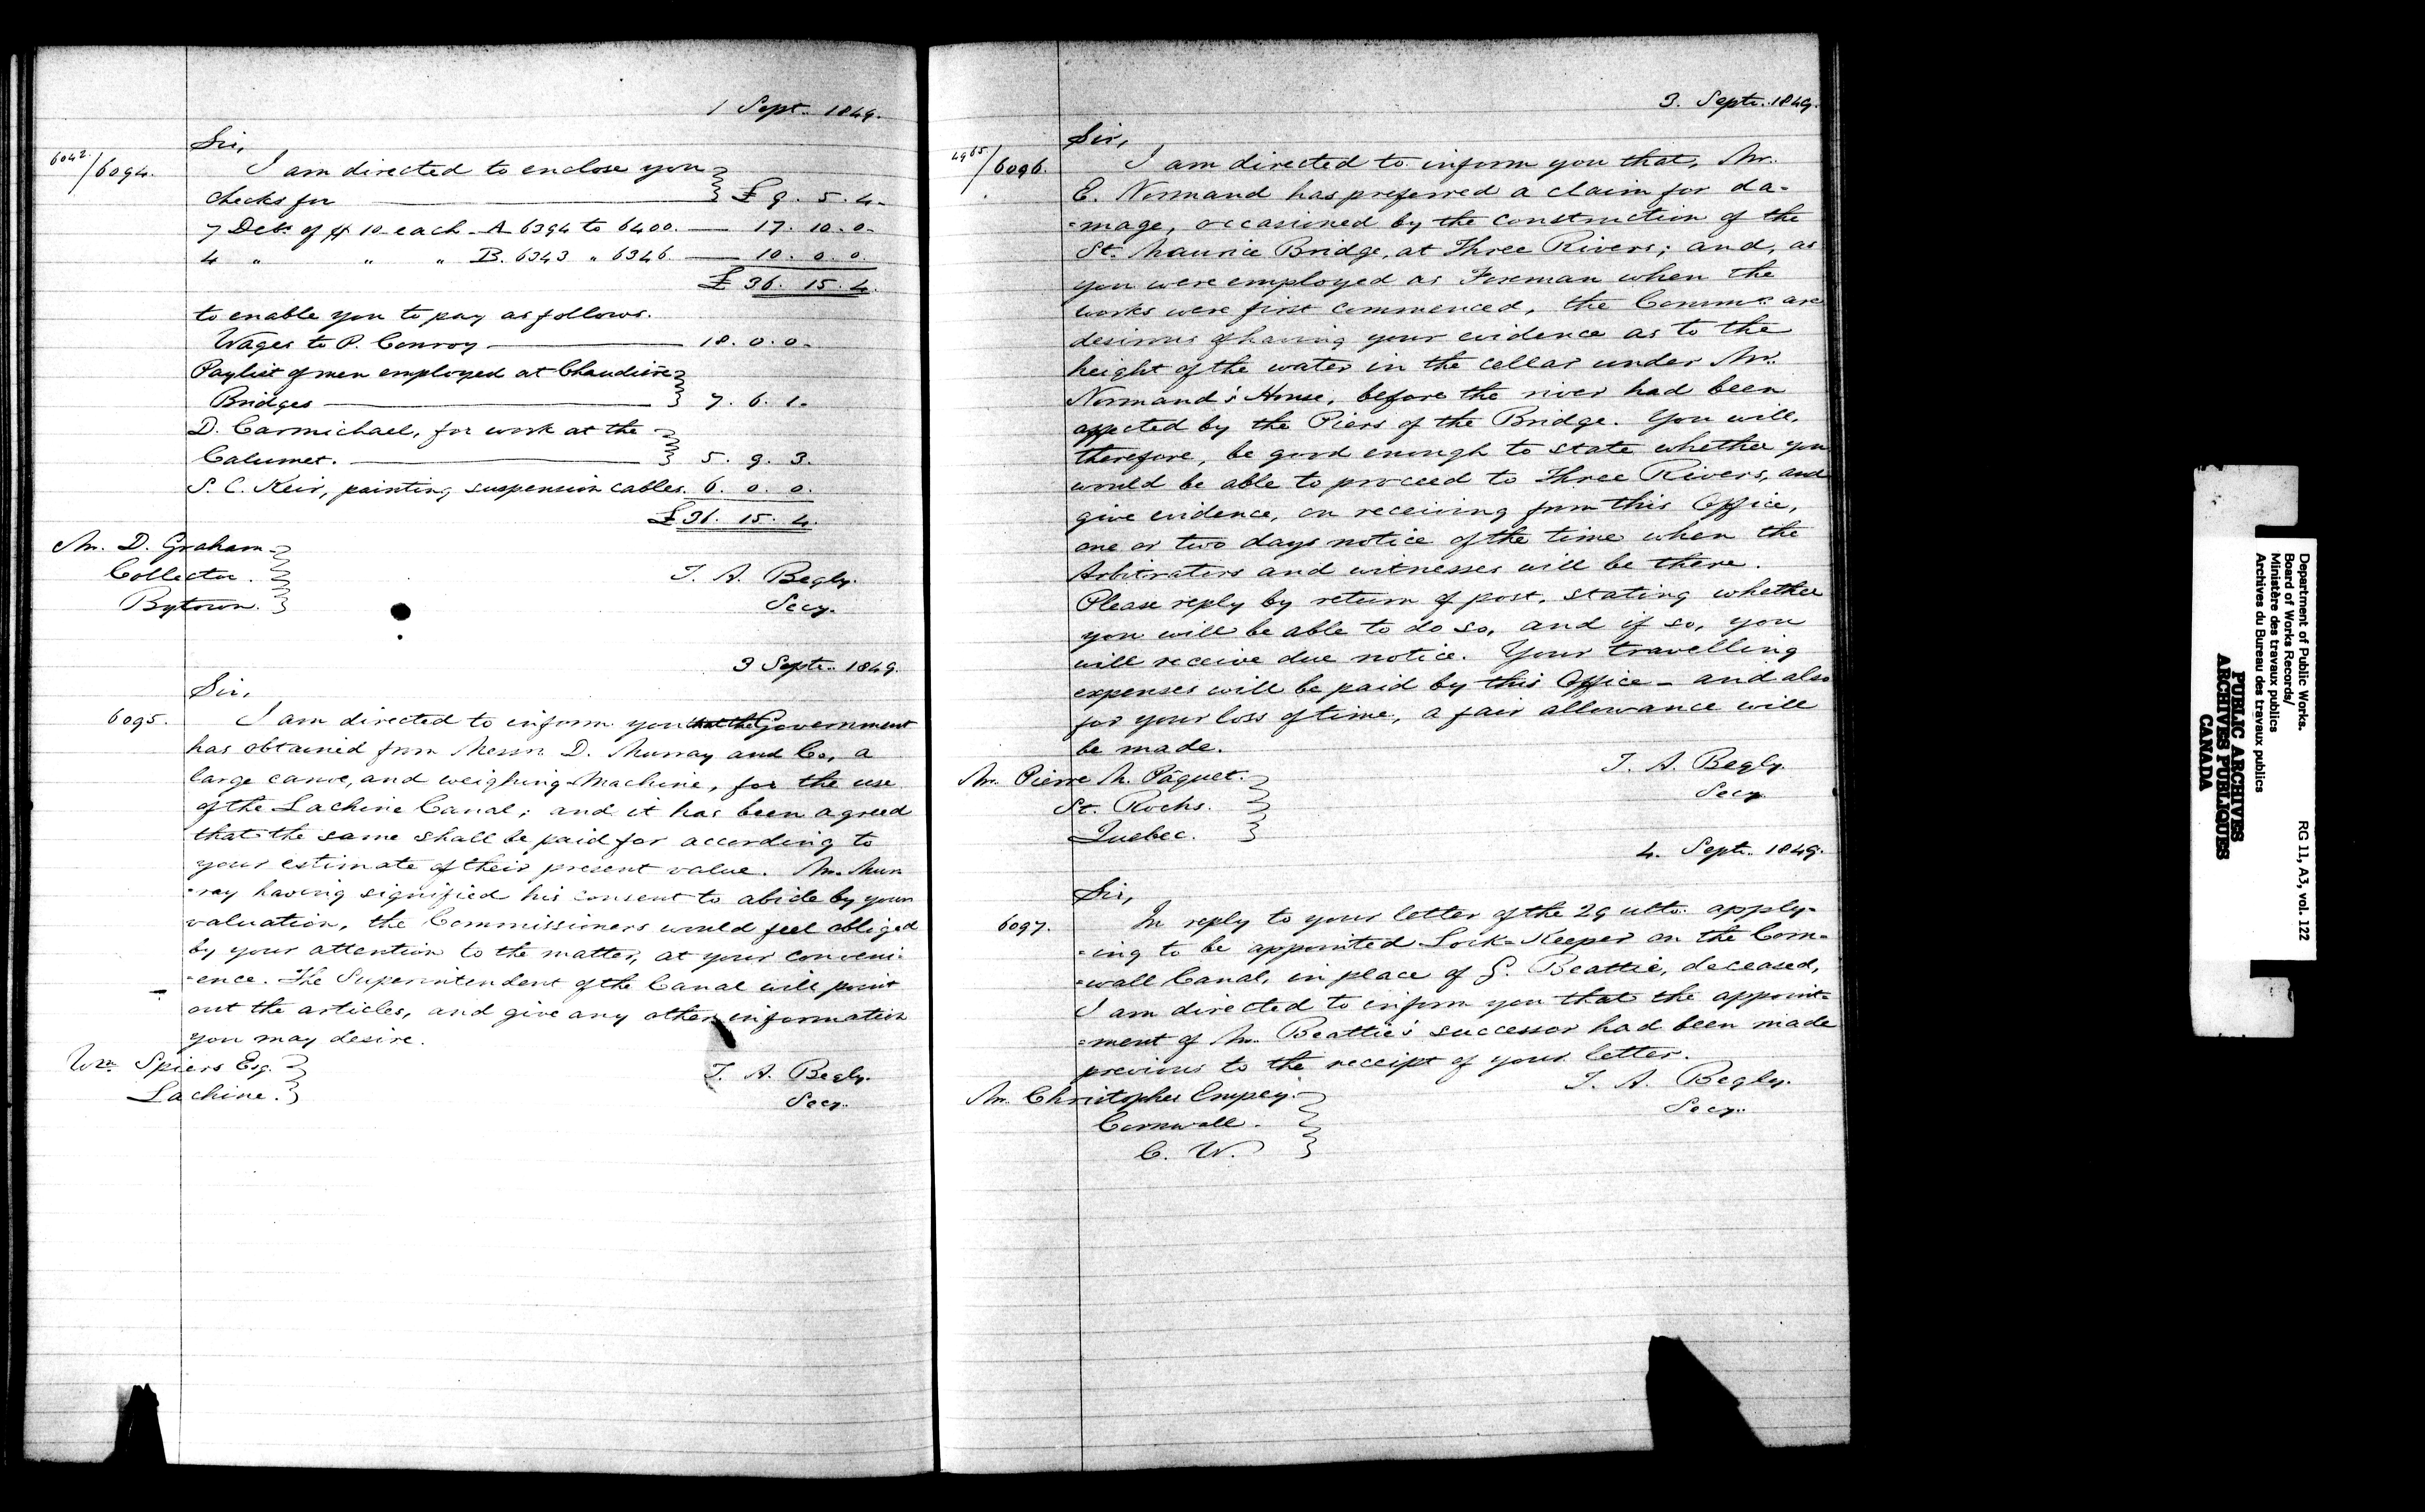 1 Sept. 1849.
Sir,
6042/6094. I am directed to enclose you
checks for £ 9. 5. 4.
7 Debs of $ 10 each A 6394 to 6400. 17. 10. 0.
4 " " " B. 6343 " 6346 10. 0. 0.
£ 36. 15. 4.
to enable you to pay as follows.
Wages to P. Conroy 18. 0. 0.
Paylist of men employed at Chaudière
Bridges 7. 6. 1.
D. Carmichael, for work at the
Calumet. 5. 9. 3.
S. C. Keir, painting suspension cables. 6. 0. 0.
£ 36. 15. 4.
Mr. D. Graham
Collector.
Bytown.
T. A. Begly.
Secy.
3 Septr. 1849.
Sir,
6095. I am directed to inform you that the Government
has obtained from Messrs D. Murray and Co, a
large canoe, and weighing-Machine, for the use
of the Lachine Canal; and it has been agreed
that the same shall be paid for according to
your estimate of their present value. Mr. Mur
=ray having signified his consent to abide by your
valuation, the Commissioners would feel obliged
by your attention to the matter, at your conveni-
=ence. The Superintendent of the Canal will point
out the articles, and give any other information
you may desire.
Wm Spiers Esq.
Lachine.
T. A. Begly.
Secy.
3. Septr. 1849.
Sir,
4965/6096. I am directed to inform you that, Mr.
E. Normand has preferred a claim for da-
=mage, occasioned by the construction of the
St. Maurice Bridge, at Three Rivers; and, as
you were employed as Foreman when the
works were first commenced, the Commrs. are
desirous of having your evidence as to the
height of the water in the cellar under Mr.
Normand's House, before the river had been
affected by the Piers of the Bridge. You will,
therefore, be good enough to state whether you
would be able to proceed to Three Rivers, and
give evidence, on receiving from this Office,
one or two days notice of the time when the
Arbitrators and witnesses will be there.
Please reply by return of post, stating whether
you will be able to do so, and if so, you
will receive due notice. Your travelling
expenses will be paid by this Office - and also
for your loss of time, a fair allowance will
be made.
Mr. Pierre M. Pâquet.
St. Rochs.
Quebec.
T. A. Begly.
Secy
4. Septr. 1849.
Sir,
6097. In reply to your letter of the 29 ulto. apply-
=ing to be appointed Lock=Keeper on the Corn=
=wall Canal, in place of G. Beattie, deceased,
I am directed to inform you that the appoint=
=ment of Mr. Beattie's successor had been made
previous to the receipt of your letter.
Mr. Christopher Empey.
Cornwall.
C. W.
T. A. Begly.
Secy.
Department of Public Works. RG 11, A3, vol. 122
Board of Works Records/
Ministère des travaux publics
Archives du Bureau des travaux publics
PUBLIC ARCHIVES
ARCHIVES PUBLIQUES
CANADA